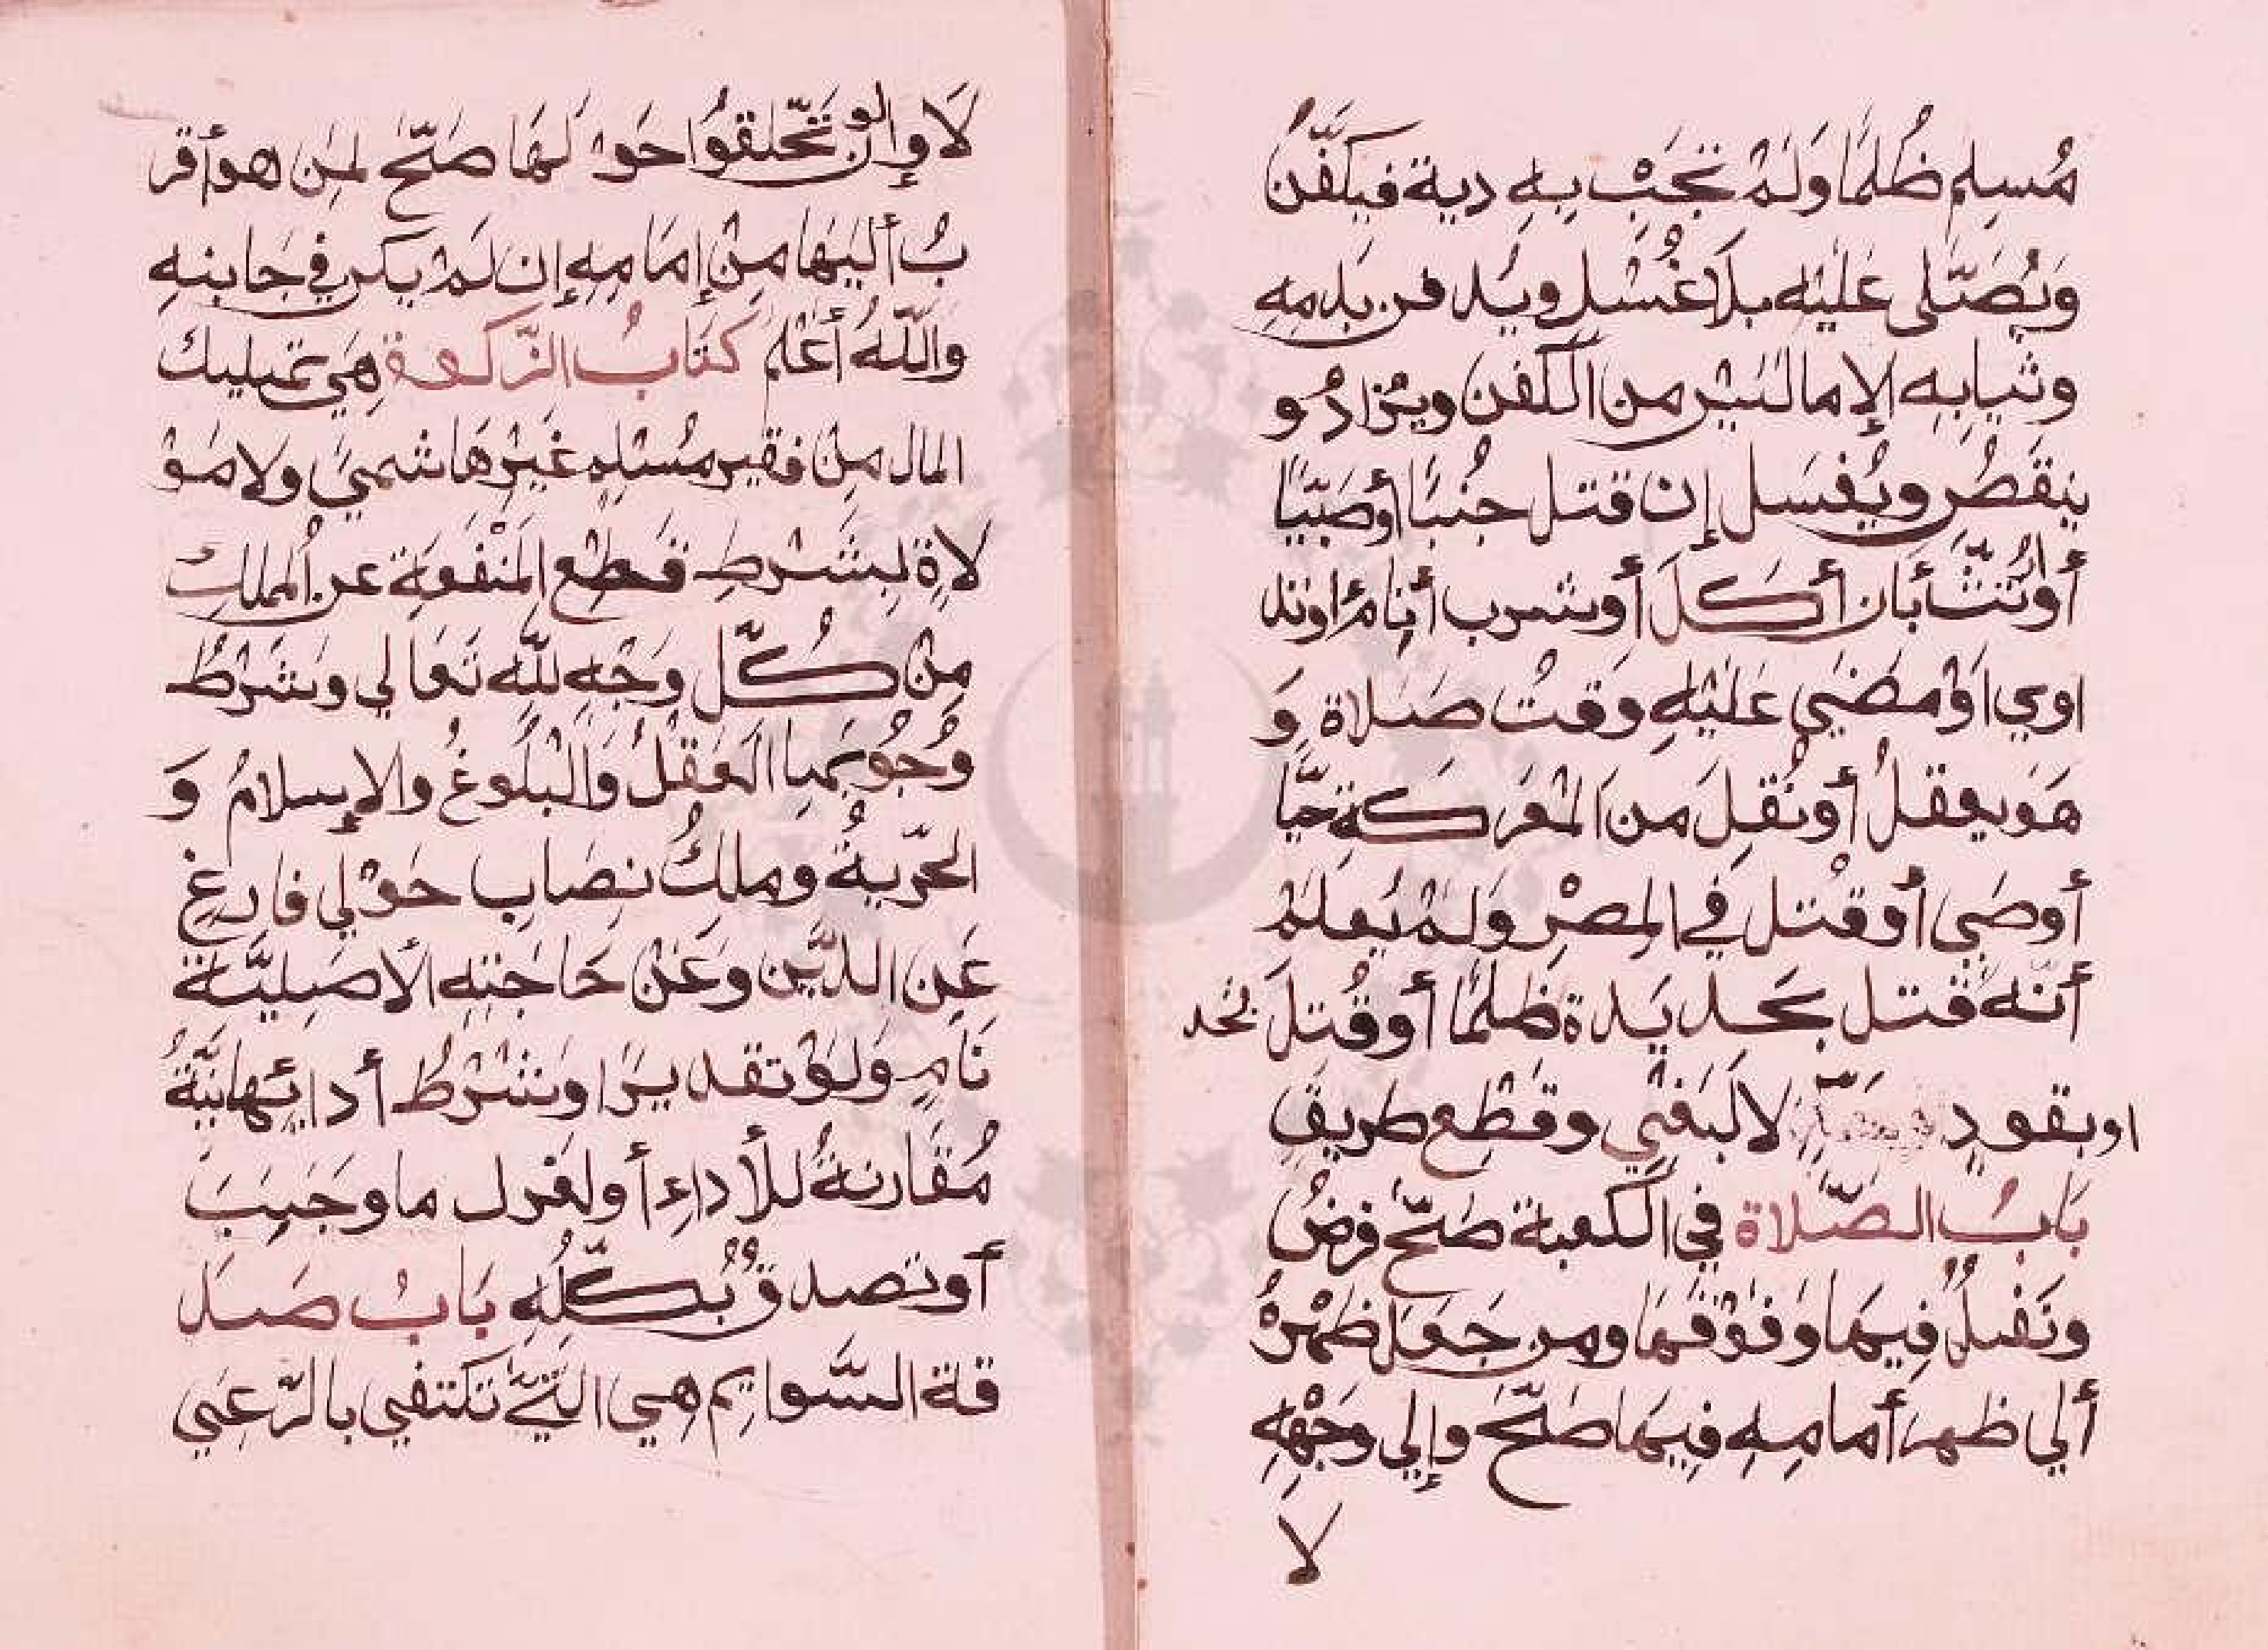 مُسلِمٍ ظُلمًا وَلَمْ تَجَبْ بِهِ دية فيكَفَّنُ
وَيُصَلَّى عَلَيْهِ بلَا غُسْلٍ ويُدفن بدمِهِ
وثيابِهِ إلا ما لَيْسَ من الكفن ويُزادُ و
ينقَصُ ويُغسَل إن قتل جنبًا أوصَبيًّا
أو ارتُثَّ بَان أكَلَ أوشرب أنامَ اوتد
اوي اَوْ مضَي عَلَيْهِ وَقتُ صَلاة وَ
هَوَ يعقلُ أونُقِلَ من المْعَركَةِ حيًّا
أوصَي أوقتل في المِصْرِ وَلَمْ يُعلَمْ
أنّهُ قتل بحديَدة ظلمًا أوقُتِلَ بحد
اوبقودٍ لا لبَغيٍ وقطع طريقِ
بَابُ الصَّلاة في الكعبة صَحّ فرضُ
ونَفلٌ فِيهَا وَفَوْقَهَا ومن جَعَلَ ظهْرهُ
ألي ظهر أمامِهِ فِيهَا صَحَّ وإلي وَجْهِهِ
لَا
لَا وإن تحّلقوُا حَوْلَهَا صَحّ لمِن هو أقر
بُ أليَهَا مِنْ إمَامِهِ إن لَمْ يكن في جَانبِهِ
واللّهُ أعْلم كتَابُ الزّكوة هَي تمليك
المال مِنْ فقير مُسْلِمٍ غَيْرِ هَاشميَ ولا مَوْ
لاةِ لِبشَرطِ قَطعِ المَنْفَعَة عن المُملِكِ
مِنْ كُلِّ وَجْهٍ للّه تَعَالي وشَرْطُ
وُجوُبهَا العَقلُ وَالْبُلُوغُ والإسلامُ وَ
الحرّيةُ ومِلكُ نِصَابِ حَوْلي فارغٍ
عَن الدَّين وعَنْ حَاجَتِهِ الأصَليَّةِ
نَامٍ وَلَوْ تقديرًا وَشرْطُ أدائِهانيَّةُ
مُقَارنةُ للأداءِ أولعَزل ما وجَبَ
أوتصدقُ بُكلّهِ بَابُ صَدَ
قة السَّوايمِ هي التيَّ تكتفي بالرّعَيِ